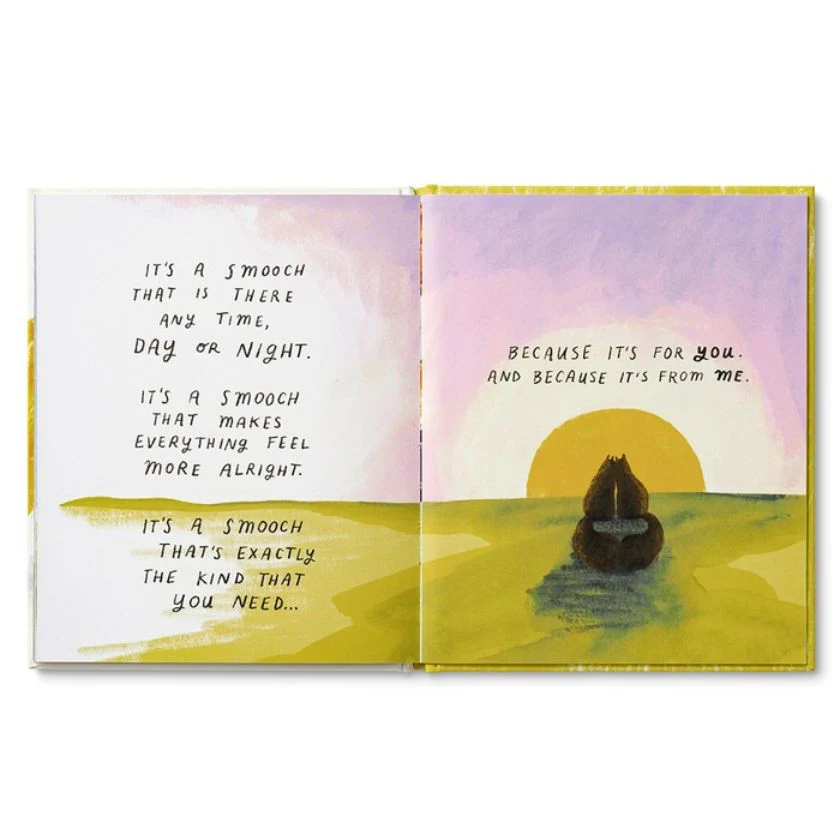 IT'S A SMOOCH
THAT IS THERE
ANY TIME,
DAY OR NIGHT.
IT'S A SMOOCH
THAT MAKES
EVERYTHING FEEL
MORE ALRIGHT.
IT'S A SMOOCH
THAT'S EXACTLY
THE KIND THAT
YOU NEED...
BECAUSE IT'S FOR YOU.
AND BECAUSE IT'S FROM ME.